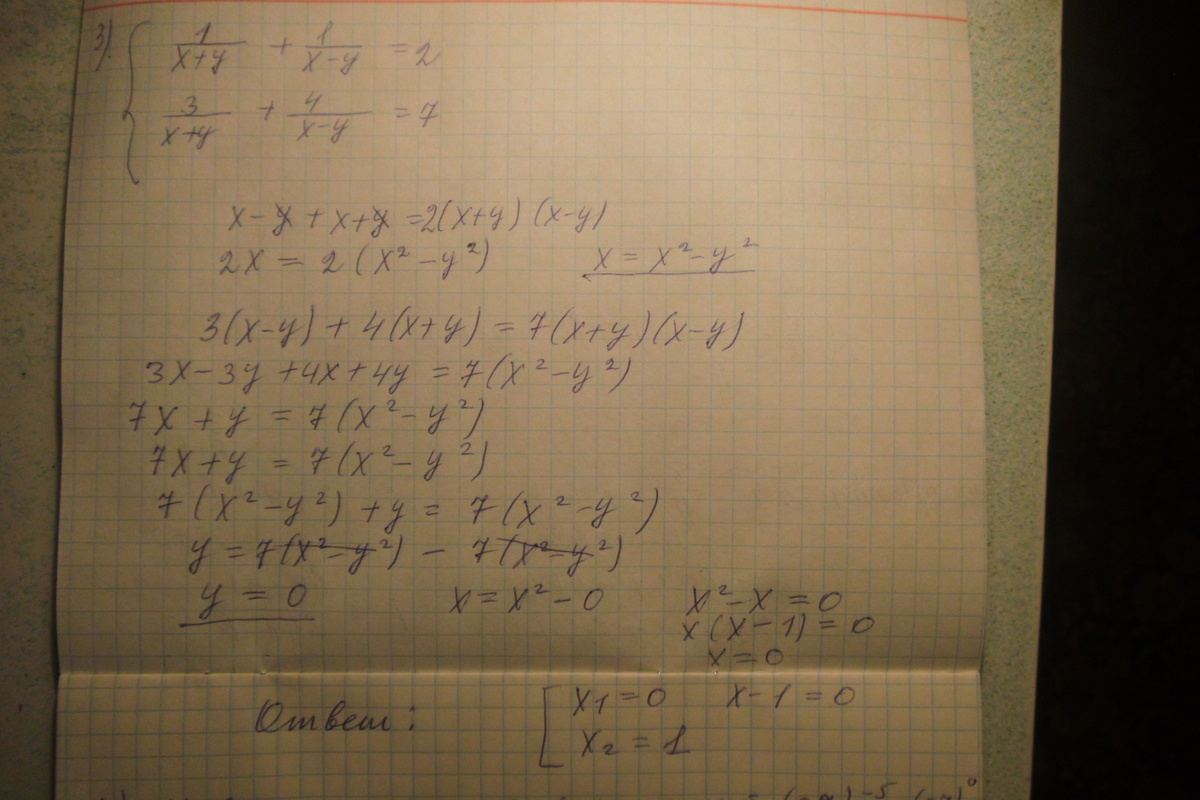 3). { 1/(x+y) + 1/(x-y) = 2
3/(x+y) + 4/(x-y) = 7
x-y + x+y = 2(x+y)(x-y)
2x = 2(x²-y²) x = x²-y²
3(x-y) + 4(x+y) = 7(x+y)(x-y)
3x-3y+4x+4y = 7(x²-y²)
7x + y = 7(x²-y²)
7x+y = 7(x²-y²)
7(x²-y²) + y = 7(x²-y²)
y = 7(x²-y²) - 7(x²-y²)
y = 0 x = x²-0 x²-x = 0
x(x-1) = 0
x=0
Ответ: [ x1 = 0 x-1 = 0
x2 = 1